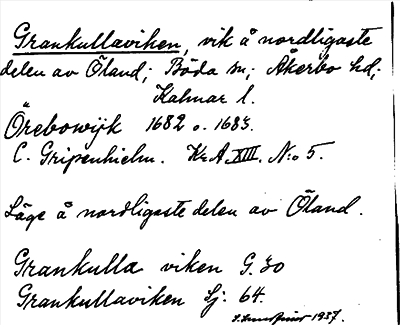 Grankullaviken, vik å nordligaste
delen av Öland; Böda sn; Åkerbo hd;
Kalmar l.
Örebowijk 1682 o. 1683.
C. Gripenhielm. Kr A XIII. N:o 5.
Läge å nordligaste delen av Öland.
Grankulla viken G. 30
Grankullaviken Sj: 64.
1937.